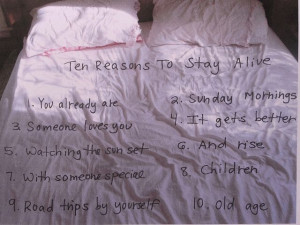 Ten Reasons To Stay Alive
1. You already ate
2. Sunday Mornings
3. Someone loves you
4. It gets better
5. Watching the sun set
6. And rise
7. With someone special
8. Children
9. Road trips by yourself
10. Old age